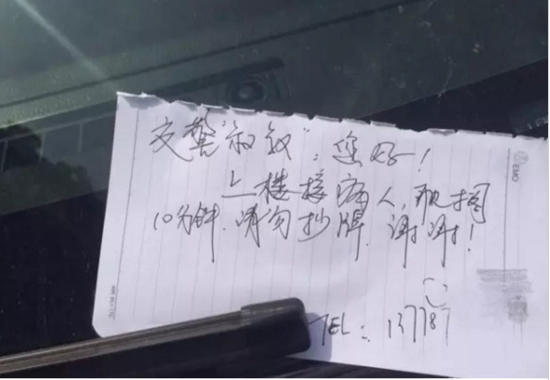 交警"叔叔":您好!
上楼接病人,耽搁
10分钟.请勿抄牌.谢谢!
TEL:137787